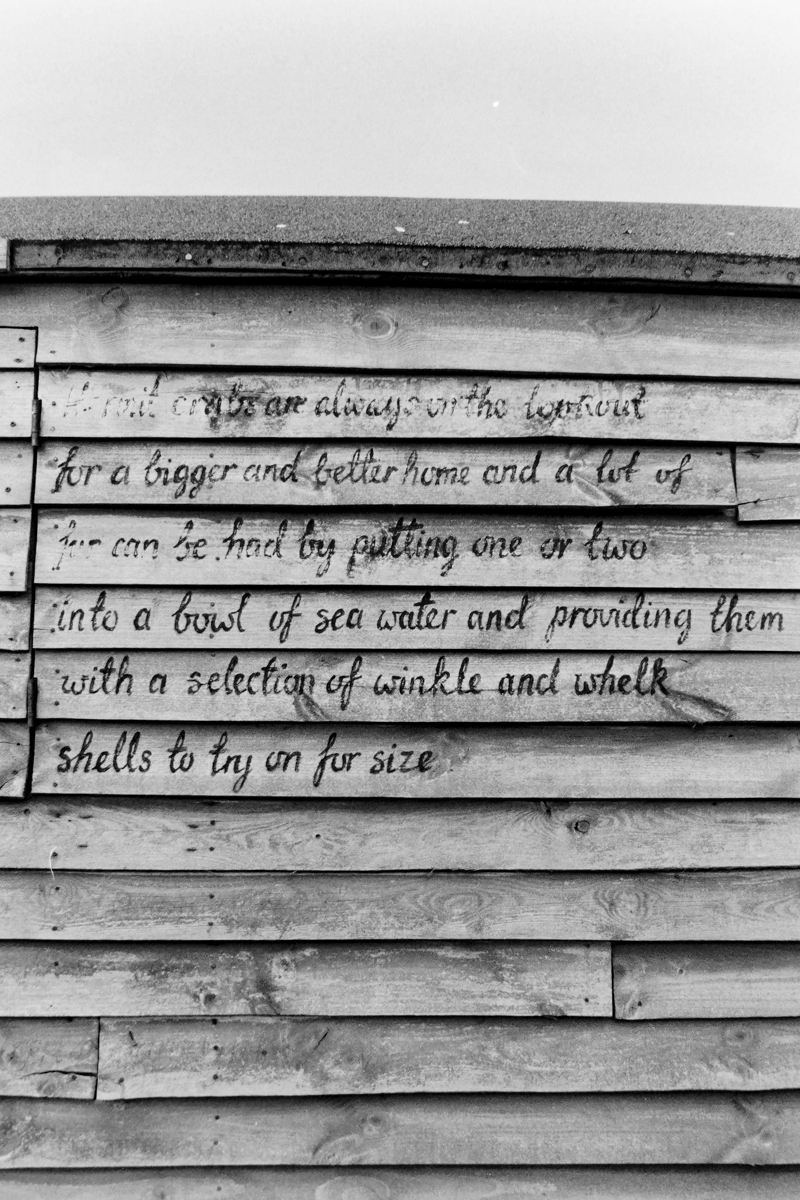 Hermit crabs are always on the lookout
for a bigger and better home and a lot of
fun can be had by putting one or two
into a bowl of sea water and providing them
with a selection of winkle and whelk
shells to try on for size